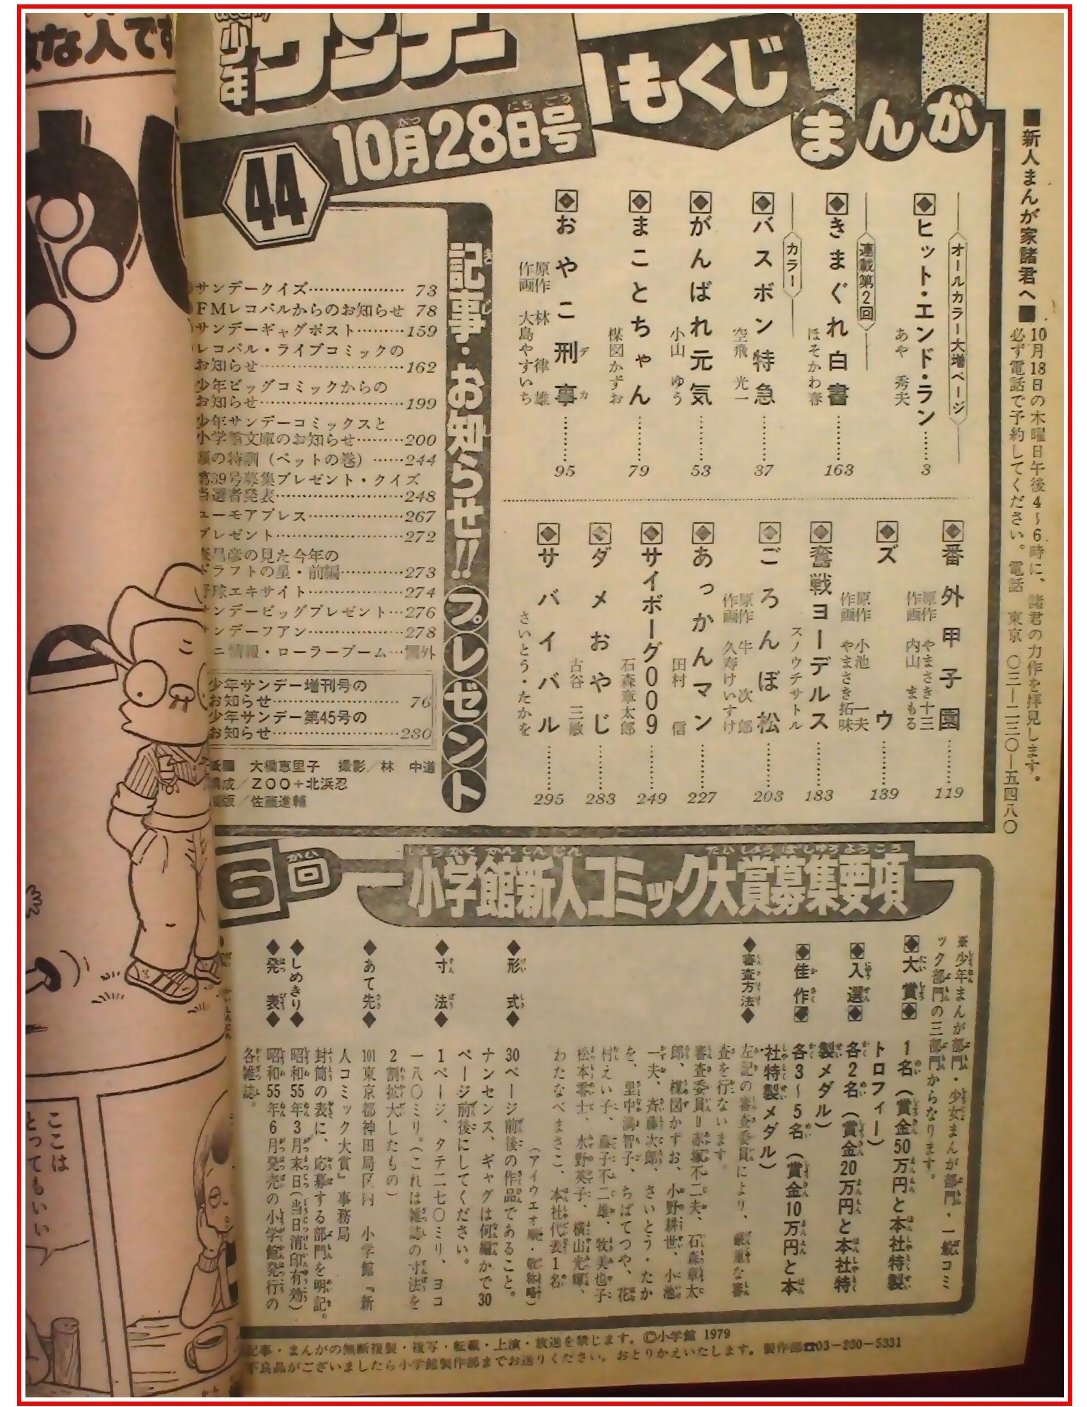 な人です
少年
サンデー
もくじ
10月28日号
44
まんが
■新人まんが家諸君へ■
10月18日の木曜日午後4〜6時に、諸君の力作を拝見します。
必ず電話で予約してください。電話 東京 〇三―二三〇―五四八〇
オールカラー大増ページ
ヒット・エンド・ラン
あや 秀夫
3
連載第2回
きまぐれ白書
ほそかわ春
163
カラー
バスボン特急
空飛 光一
37
がんばれ元気
小山 ゆう
53
まことちゃん
楳図かずお
79
おやこ刑事
デカ
原作 林 律雄
作画 大島やすいち
95
番外甲子園
原作 やまさき十三
作画 内山 まもる
119
ズウ
原作 小池 一夫
作画 やまさき拓味
139
奮戦ヨーデルス
スノウチサトル
183
ごろんぼ松
原作 牛 次郎
作画 久寿けいすけ
203
あっかんマン
田村 信
227
サイボーグ009
石森章太郎
249
ダメおやじ
古谷 三敏
283
サバイバル
さいとう・たかを
295
記事・お知らせ!!プレゼント
サンデークイズ………73
FMレコパルからのお知らせ 78
サンデーギャグポスト………159
レコパル・ライブコミックの
お知らせ………162
少年ビッグコミックからの
お知らせ………199
少年サンデーコミックスと
小学館文庫のお知らせ………200
の特訓(ペットの巻)………244
第39号募集プレゼント・クイズ
当選者発表………248
ユーモアプレス………267
プレゼント………272
昌彦の見た今年の
ドラフトの星・前編………273
野球エキサイト………274
サンデービッグプレゼント…276
サンデーファン………278
ミニ情報・ローラーブーム…欄外
少年サンデー増刊号の
お知らせ………76
少年サンデー第45号の
お知らせ………280
大橋恵里子 撮影/林 中道
構成/ZOO+北浜忍
佐藤進輔
6回
小学館新人コミック大賞募集要項
※少年まんが部門・少女まんが部門・一般コミ
ック部門の三部門からなります。
◆大賞◆ 1名(賞金50万円と本社特製
トロフィー)
◆入選◆ 各2名(賞金20万円と本社特
製メダル)
◆佳作◆ 各3〜5名(賞金10万円と本
社特製メダル)
◆審査方法◆ 左記の審査委員により、厳重な審
査を行ないます。
審査委員=赤塚不二夫、石森章太
郎、楳図かずお、小野耕世、小池
一夫、斉藤次郎、さいとう・たか
を、里中満智子、ちばてつや、花
村えい子、藤子不二雄、牧美也子
松本零士、水野英子、横山光輝、
わたなべまさこ、本社代表1名
(アイウエオ順・敬称略)
◆形式◆ 30ページ前後の作品であること。
ナンセンス、ギャグは何編かで30
ページ前後にしてください。
◆寸法◆ 1ページ、タテ二七〇ミリ、ヨコ
一八〇ミリ。(これは雑誌の寸法を
2割拡大したもの)
◆あて先◆ 101東京都神田局区内 小学館『新
人コミック大賞』事務局
封筒の表に、応募する部門を明記。
◆しめきり◆ 昭和55年3月末日(当日消印有効)
◆発表◆ 昭和55年6月発売の小学館発行の
各雑誌。
記事・まんがの無断複製・複写・転載・上演・放送を禁じます。©小学館 1979
不良品がございましたら小学館製作部までお送りください。おとりかえいたします。製作部☎03-230-5331
ここは
とってもいい